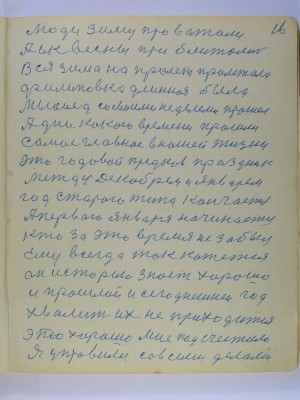 16
Люди зиму провожали
А ик весны приблитолот
Вся зима на пролет пролетала
Филиповка длинная была
Мясоед со своими неделями прошел
А дни какого времени прошли
Самое главное в нашей жизни
Это годовой предков праздник
Между Декабрем и Январем
год старого типа кончаетц
А первого Января начинаетц
Кто за это время не забыл
Ему всегда так кажется
он историю знает хорошо
и прошлой и сегоднешней год
Хвалит их не приходится
Это хорошо мне подсчетило
Я управили совсеми делами